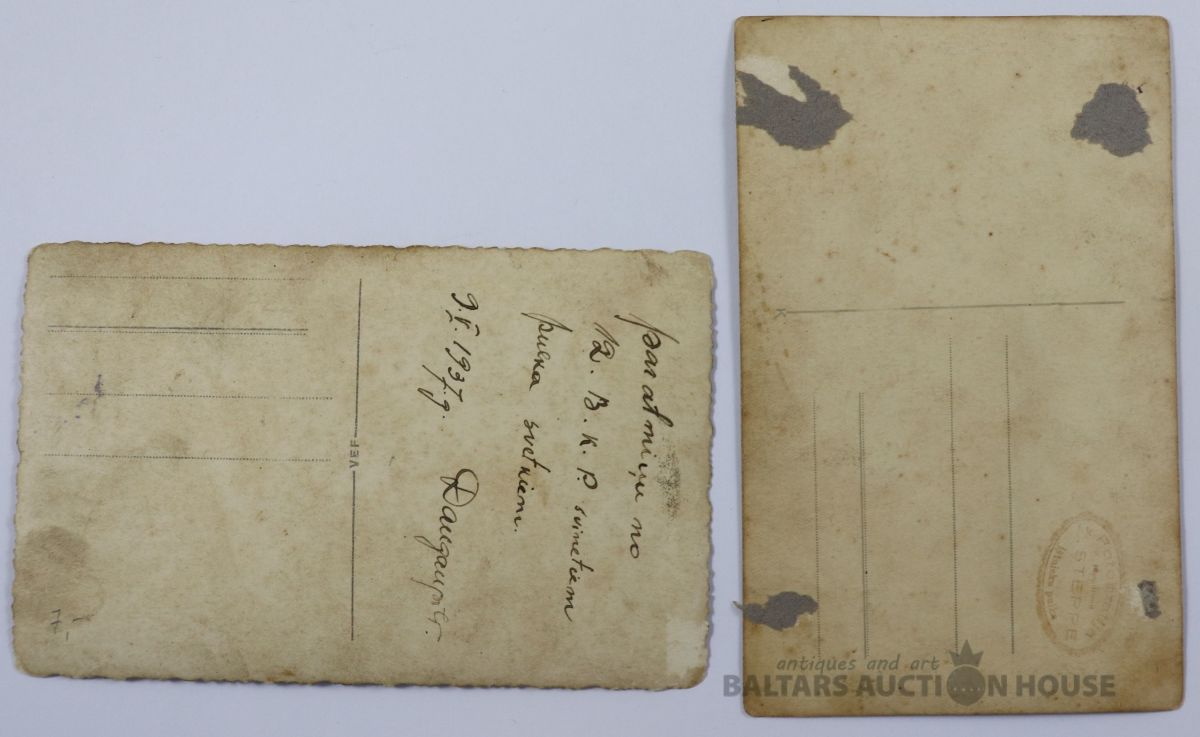 par atmiņu no
12. B. K. P. svinētiem
pulka svētkiem.
9.V.1937.g. Daugavpilī.
VEF
7-
STEPPE
antiques and art
BALTARS AUCTION HOUSE